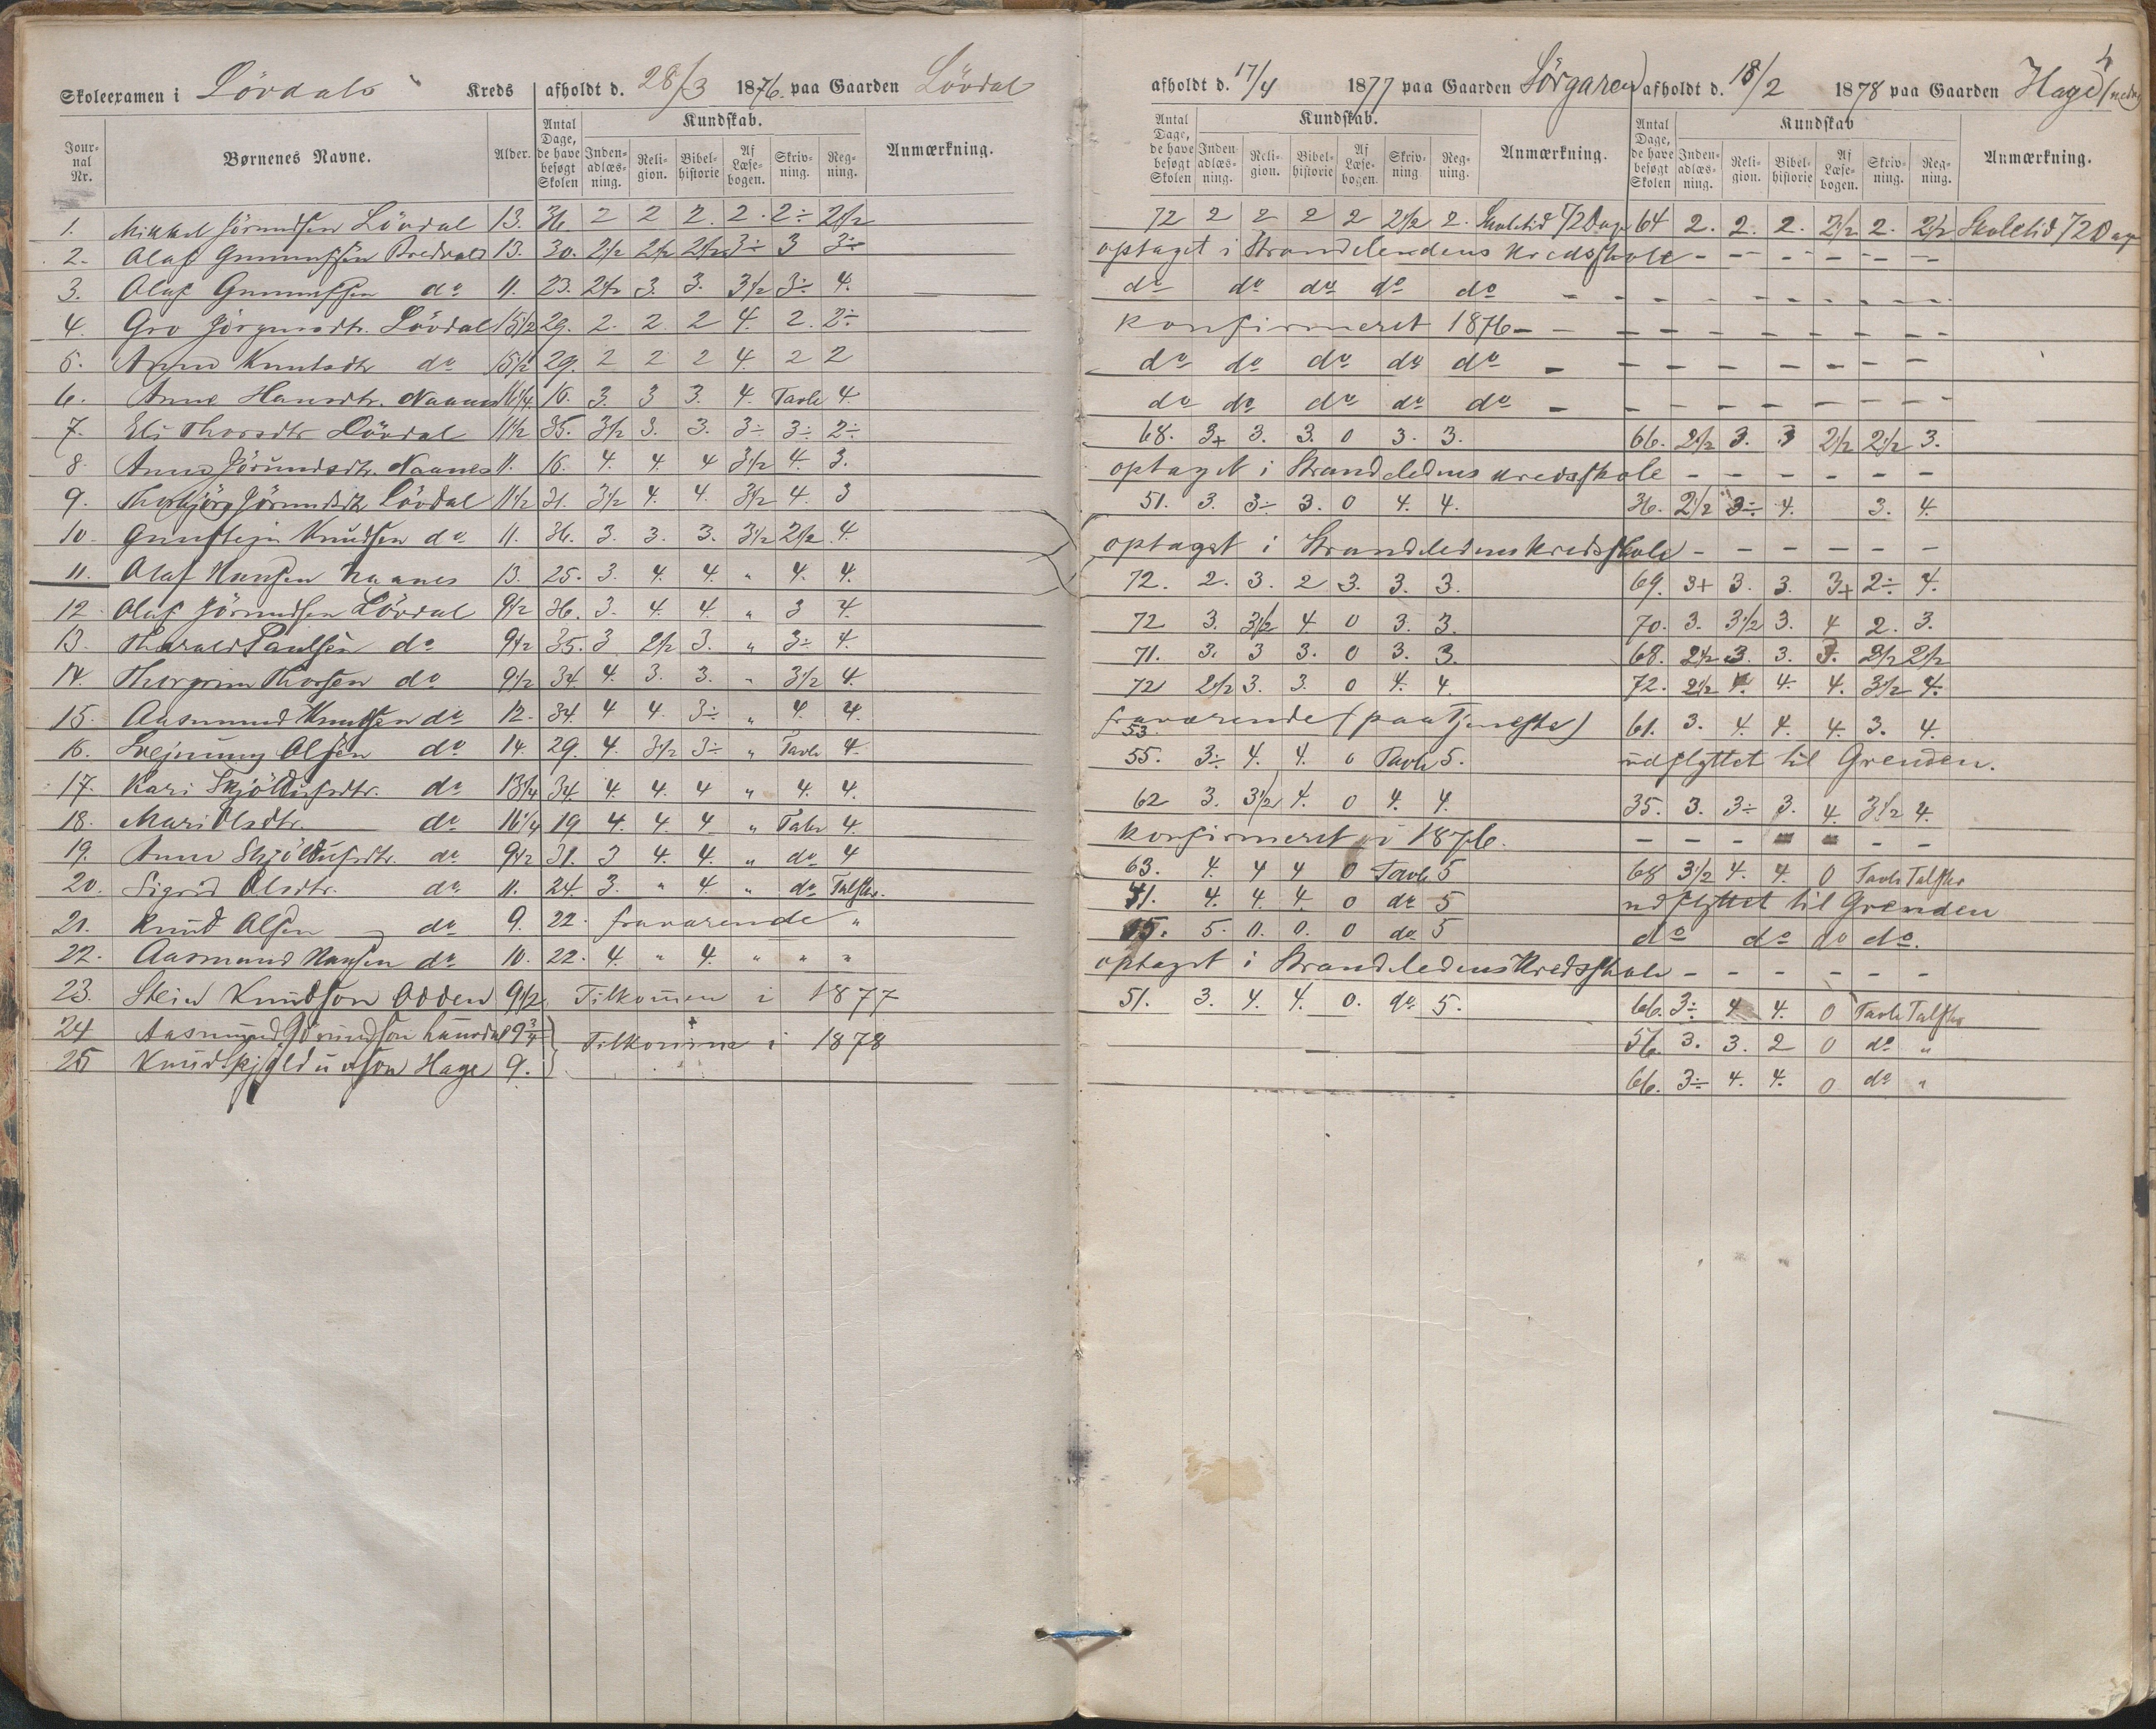 Skoleexamen i Lövdals Kreds afholdt d. 28/3 1876. paa Gaarden Lövdal
Jour-nal Nr. Børnenes Navne. Alder. Antal Dage, de have besøgt Skolen Kundskab. Inden-adlæs-ning. Reli-gion. Bibel-historie Af Læse-bogen. Skriv-ning. Reg-ning. Anmærkning.
1. Mikkel Jörundsen Lövdal 13. 36. 2 2 2. 2. 2÷ 2½
2. Olaf Gunnufsen 13. 30. 2½ 2½ 2½ 3÷ 3 3÷
3. Olaf Gunnufsen do 11. 23. 2½ 3. 3. 3½ 3÷ 4.
4. Gro Lövdal 15½ 29. 2. 2. 2 4. 2. 2÷
5. Anne Knutsdtr do 15½ 29. 2 2 2 4. 2 2
6. Anne Hansdtr. Naanes 16¼ 16. 3. 3 3. 4. Tavle 4.
7. Eli Thorsdtr Lövdal 11½ 35. 3½ 3. 3. 3÷ 3÷ 2÷
8. Anne Jörundsdtr. Naanes 11. 16. 4. 4. 4 3½ 4. 3.
9. Thorbjörg Jörundsdtr Lövdal 11½ 31. 3½ 4. 4. 3½ 4. 3
10. Gunstein Knudsen do 11. 36. 3. 3. 3. 3½ 2½ 4.
11. Olaf Hansen Naanes 13. 25. 3. 4. 4. " 4. 4.
12. Olaf Jörundsen Lövdal 9½ 36. 3. 4. 4. " 3 4.
13. Tharald Paulsen do 9½ 35. 3 2½ 3. " 3÷ 4.
14. Thorgrim Thorsen do 9½ 34. 4. 3. 3. " 3½ 4.
15. Aasmund Knutsen do 12. 34. 4 4. 3÷ " 4. 4.
16. Svejnung Olsen do 14. 29. 4. 3½ 3÷ " Tavle 4.
17. Kari Skjöldufsdtr. do 13¼ 34. 4. 4. 4 " 4. 4.
18. Mari Olsdtr. do 16¼ 19 4. 4. 4. " Tavle 4.
19. Anne Skjöldufsdtr. do 9½ 31. 3 4. 4. " do 4
20. Sigrid Olsdtr. do 11. 24. 3. " 4. " do Talskr.
21. Knud Olsen do 9. 22. fraværende "
22. Aasmund Hansen do 10. 22. 4. " 4. " " "
23. Stein Knudson Odden 9½ Tilkommen i 1877
24 Aasmund Görundson 9¾ Tilkommen i 1878
25 Knud Hage 9.
afholdt d. 17/4 1877 paa Gaarden Sörgaren
Antal Dage, de have besøgt Skolen Kundskab. Inden-adlæs-ning. Reli-gion. Bibel-historie Af Læse-bogen. Skriv-ning Reg-ning. Anmærkning.
72 2 2 2 2 2½ 2. Skoletid 72 Dage
optaget i Strandeledens Kredsskole
do do do do do
Konfirmeret 1876
do do do do do
do do do do do
68. 3+ 3. 3. 0 3. 3.
optaget i Strandeledens Kredsskole
51. 3. 3÷ 3. 0 4. 4.
optaget i Strandeledens Kredsskole
72. 2. 3. 2 3. 3. 3.
72 3. 3½ 4. 0 3. 3.
71. 3. 3 3. 0 3. 3.
72 2½ 3. 3. 0 4. 4.
fraværende (paa Tjeneste)
53
55. 3÷ 4. 4. 0 Tavle 5.
62 3. 3½ 4. 0 4. 4.
Konfirmeret i 1876.
63. 4. 4 4 0 Tavle 5
41. 4. 4. 4. 0 do 5
5. 0. 0. 0 do 5
optaget i Strandeledens Kredsskole
51. 3. 4. 4. 0. do 5.
afholdt d. 18/2 1878 paa Gaarden Hage
4
Antal Dage, de have besøgt Skolen Kundskab Inden-adlæs-ning. Reli-gion. Bibel-historie Af Læse-bogen. Skriv-ning. Reg-ning. Anmærkning.
64 2. 2. 2. 2½ 2. 2½ Skoletid 72 Dage
66. 2½ 3. 3 2½ 2½ 3.
36. 2½ 3÷ 4. 3. 4.
69. 3+ 3. 3. 3+ 2÷ 4.
70. 3. 3½ 3. 4 2. 3.
68. 2½ 3. 3. 3. 2½ 2½
72. 2½ 4. 4. 4. 3½ 4.
61. 3. 4. 4. 4. 3. 4.
udflyttet til Grenden.
35. 3. 3÷ 3. 4. 3½ 4.
68 3½ 4. 4. 0 Tavle Talskr
udflyttet til Grenden
do do do do.
66. 3÷ 4 4. 0 Tavle Talskr
56. 3. 3. 2 0 do "
66. 3÷ 4. 4. 0 do "